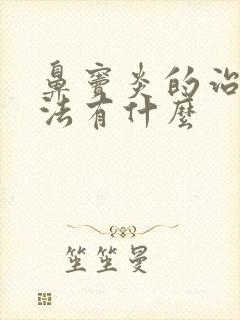 鼻窦炎的治
法有什麼
笙笙曼